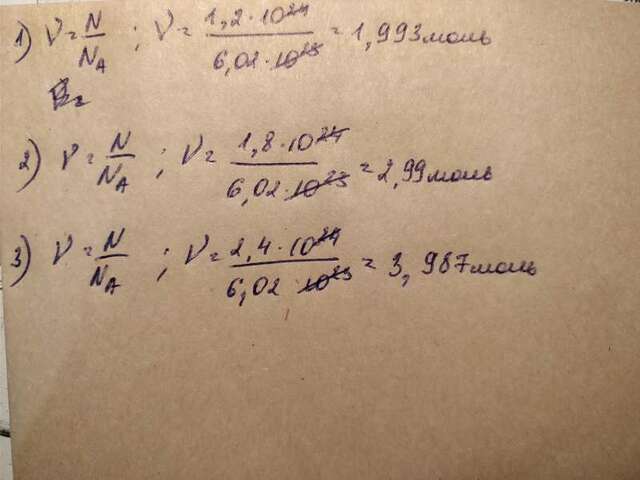 1) ν = N/N_A ; ν = 1,2 · 10²⁴ / 6,02 · 10²³ = 1,993 моль
2) ν = N/N_A ; ν = 1,8 · 10²⁴ / 6,02 · 10²³ = 2,99 моль
3) ν = N/N_A ; ν = 2,4 · 10²⁴ / 6,02 · 10²³ = 3,987 моль